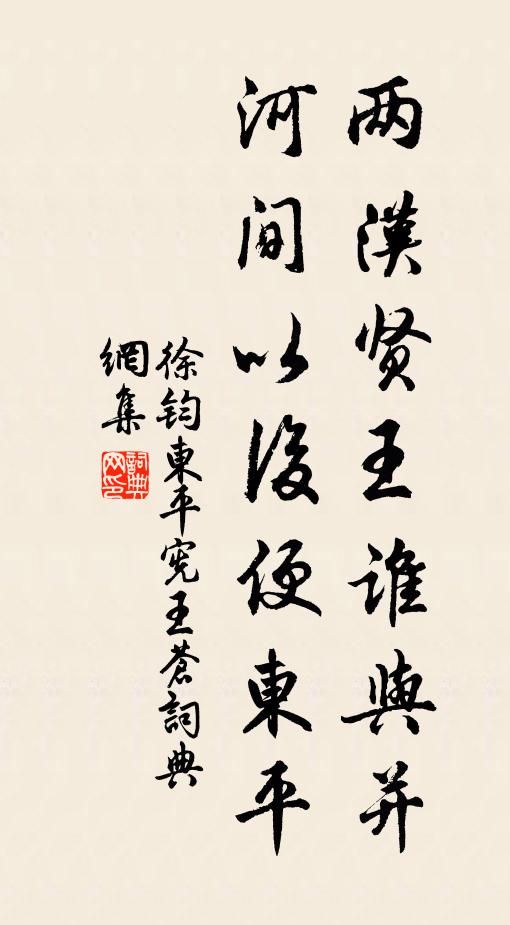 两漢贤王谁與并
河间以後便東平
徐钧東平宪王蒼詞典
網集
詞典网印